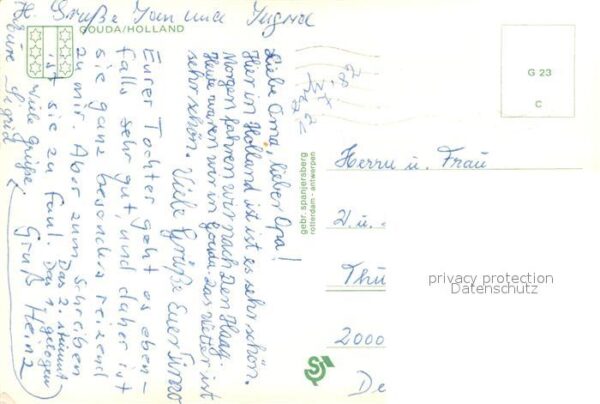 H. Gruße Jan und Ingrid
GOUDA/HOLLAND
Liebe Oma, lieber Opa!
Hier in Holland ist es sehr schön.
Morgen fahren wir nach Den Haag.
Heute waren wir in Gouda. Das Wetter ist
sehr schön. Viele Grüße Euer Timo
Eurer Tochter geht es eben-
falls sehr gut, und daher ist
sie ganz besonders reizend
zu mir. Aber zum Schreiben
ist sie zu faul. Das 2. stimmt
Das 1. gelogen
Viele Grüße Gruß Heinz
Eure Sigrid
gebr. spanjersberg
rotterdam - antwerpen
G 23
C
Herrn u. Frau
H. u.
Thü
2000
De
privacy protection
Datenschutz